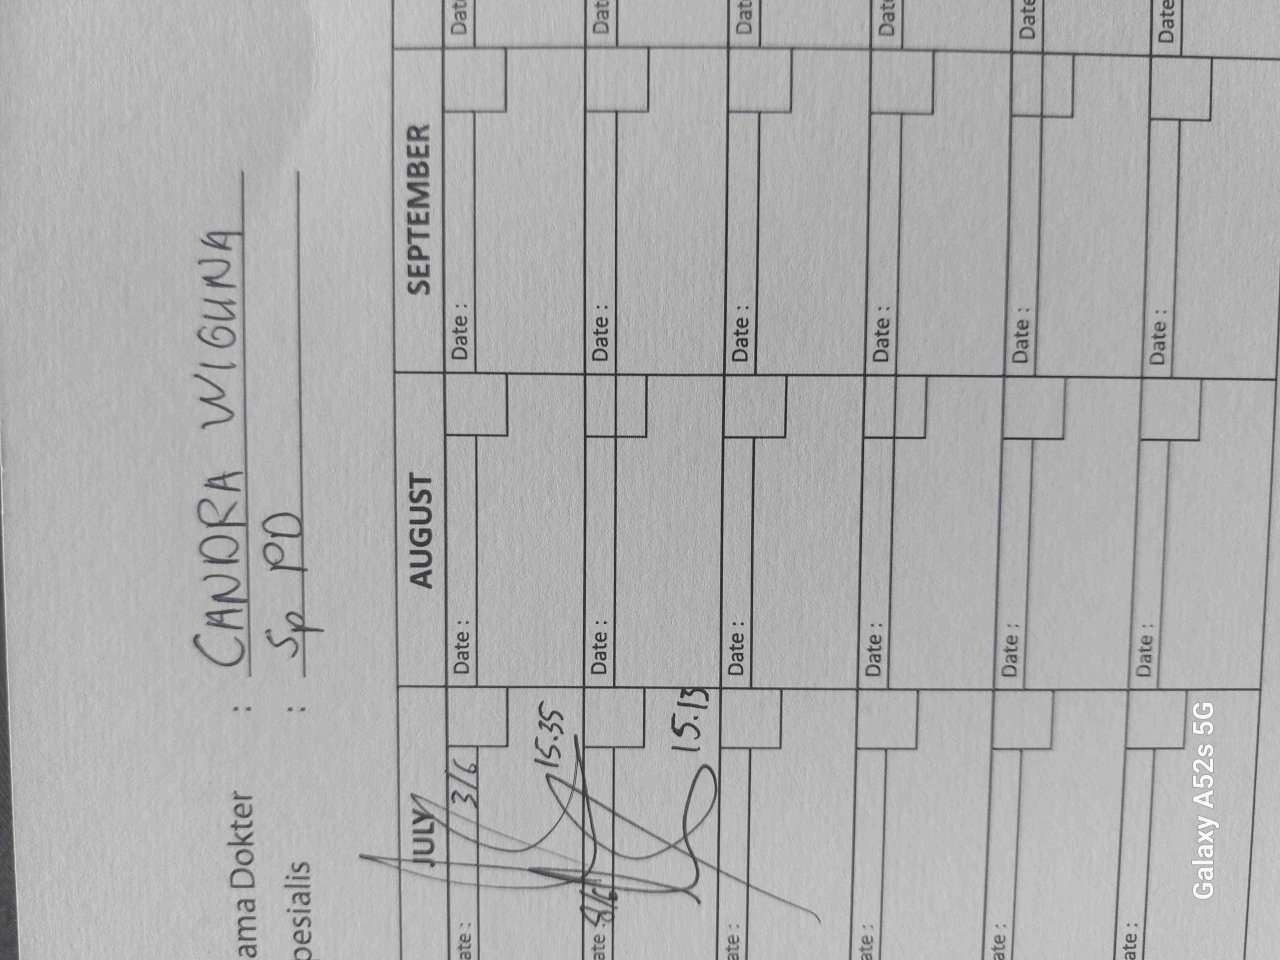 ama Dokter : CANDRA WIGUNA
pesialis : Sp PD
JULY AUGUST SEPTEMBER
ate : 3/6 Date : Date : Dat
15.35
ate : 8/6 Date : Date : Dat
15.13
ate : Date : Date : Dat
ate : Date : Date : Date
ate : Date : Date : Date
ate : Date : Date : Date
Galaxy A52s 5G